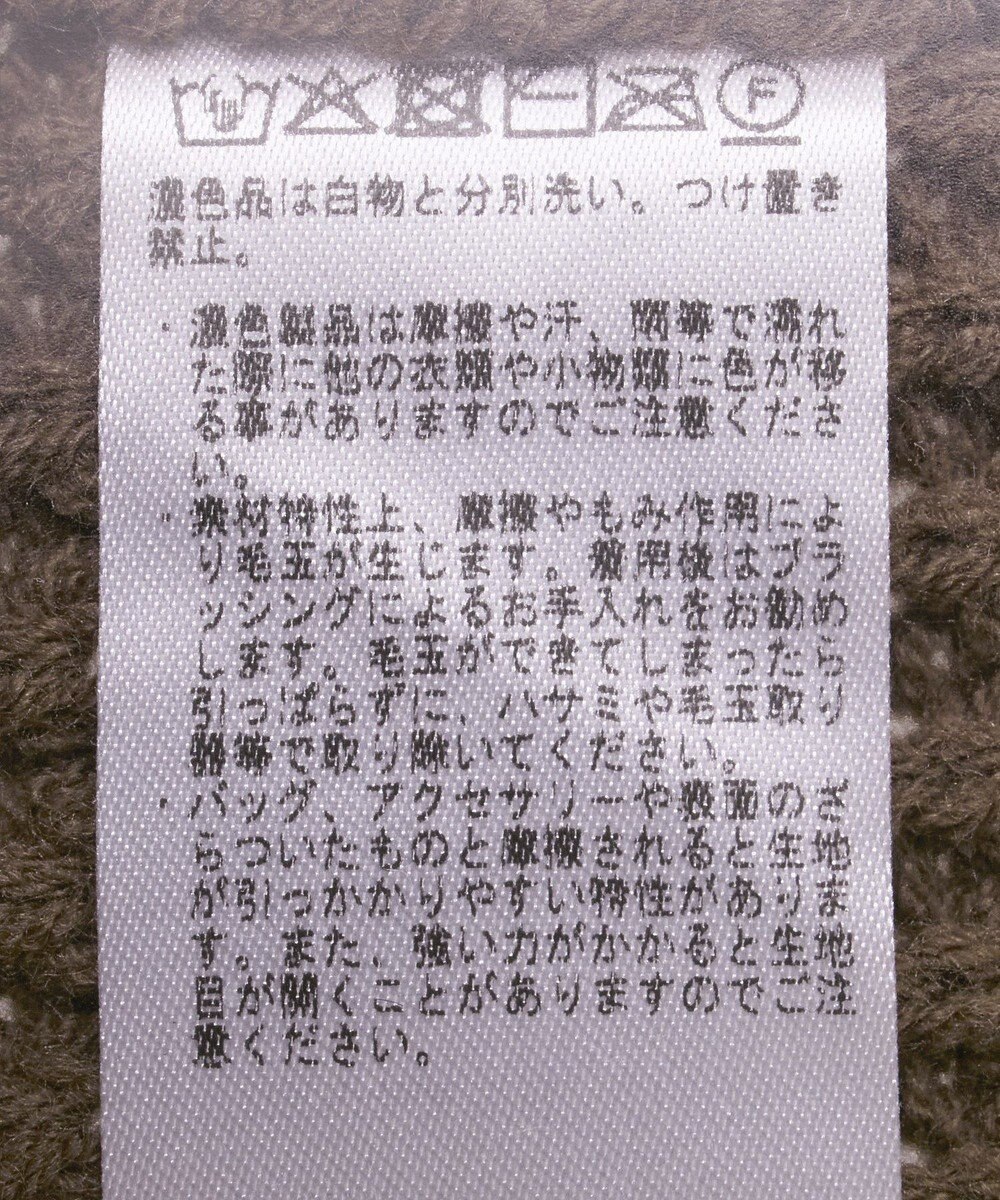 F
濃色品は白物と分別洗い。つけ置き
禁止。
・濃色製品は摩擦や汗、雨等で濡れ
た際に他の衣類や小物類に色が移
る事がありますのでご注意くださ
い。
・素材特性上、摩擦やもみ作用によ
り毛玉が生じます。着用後はブラ
ッシングによるお手入れをお勧め
します。毛玉ができてしまったら
引っぱらずに、ハサミや毛玉取り
器等で取り除いてください。
・バッグ、アクセサリーや表面のざ
らついたものと摩擦されると生地
が引っかかりやすい特性がありま
す。また、強い力がかかると生地
目が開くことがありますのでご注
意ください。